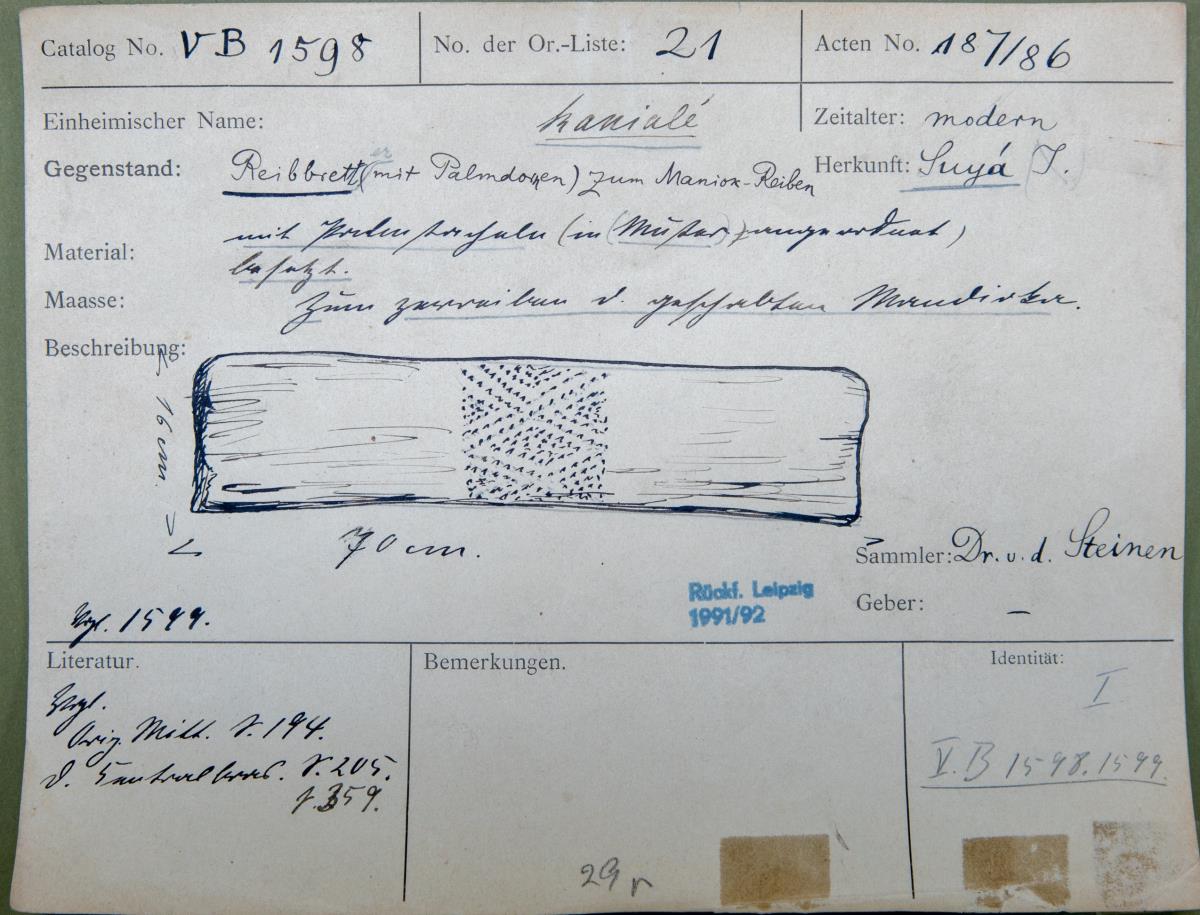 Catalog No. VB 1598
No. der Or.-Liste: 21
Acten No. 187/86
Einheimischer Name: kanialé
Zeitalter: modern
Gegenstand: Reibbrett (mit Palmdornen) zum Maniok-Reiben
Herkunft: Suyá I.
mit Palmstacheln (in (Muster) angeordnet)
Material:
besetzt.
Maasse:
Zum zerreiben d. geschabten Mandioka.
Beschreibung:
16 cm.
70 cm.
Sammler: Dr. v. d. Steinen
Rückf. Leipzig
1991/92
Geber: –
Vgl. 1599.
Literatur.
Vgl.
Orig. Mitt. S. 194.
d. Centralbras. S. 205.
S. 359.
Bemerkungen.
29 r
Identität:
I
V.B 1598.1599